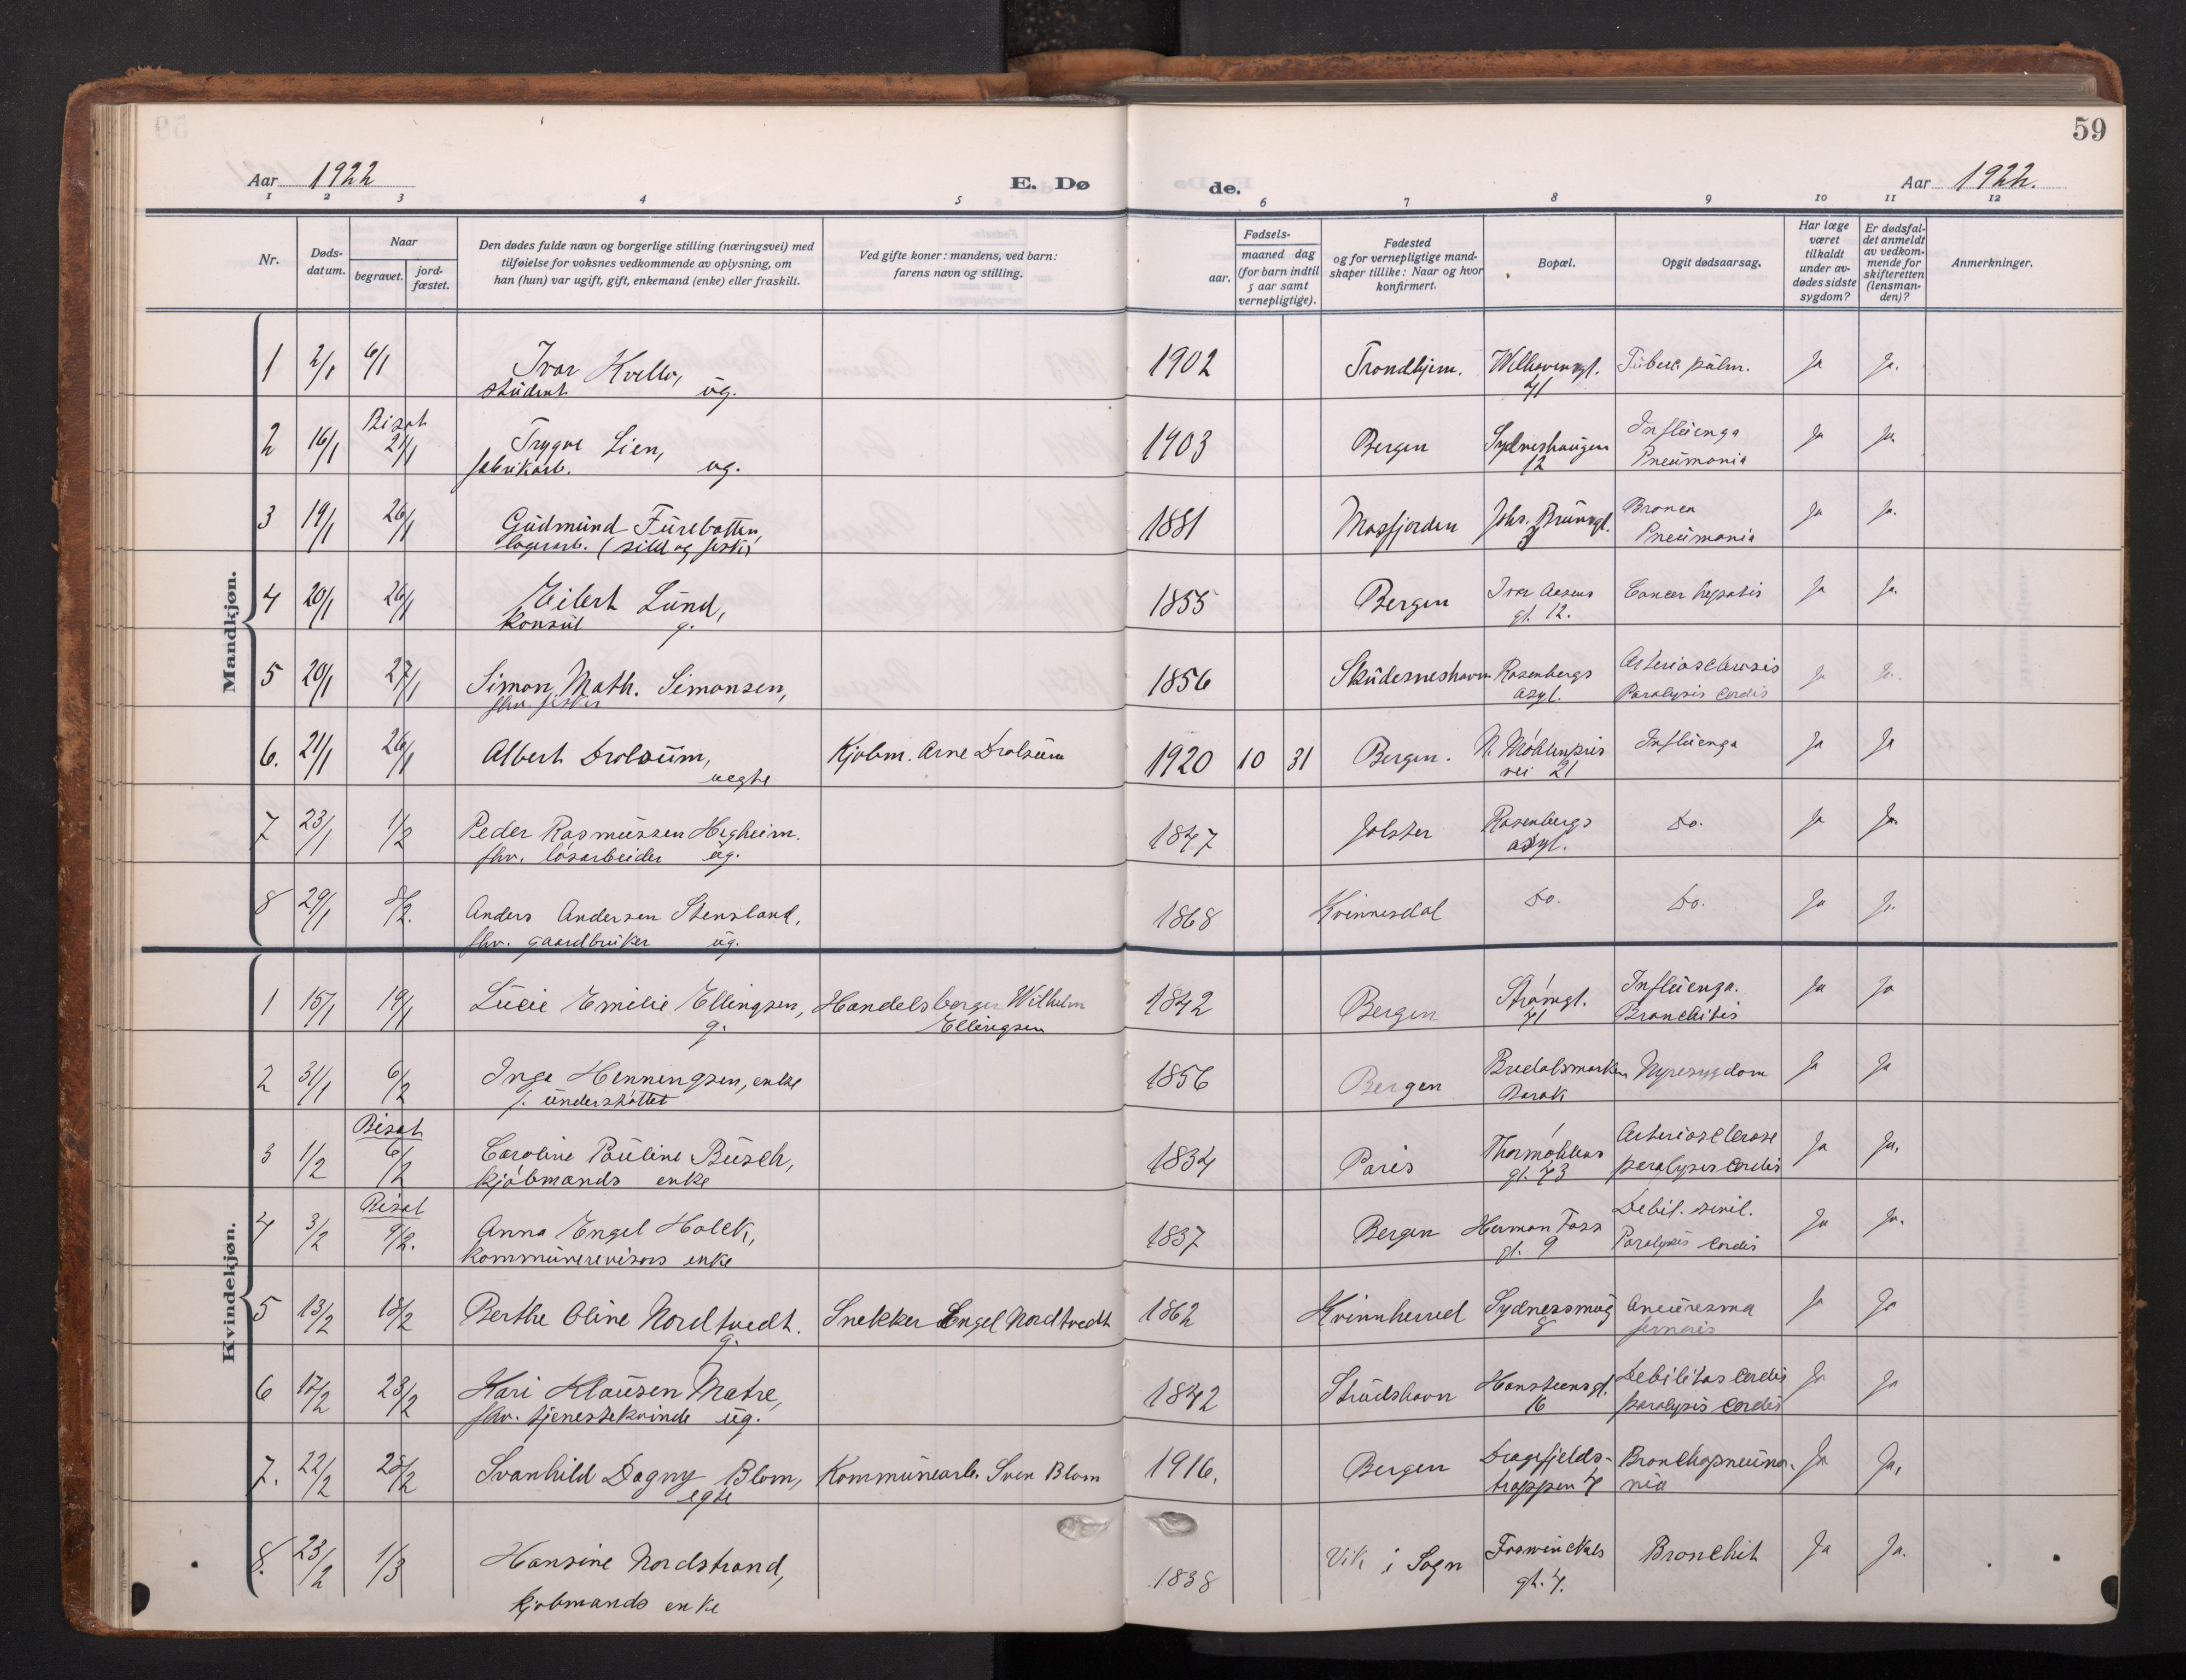 59
Aar 1922
E. Dø
de.
Aar 1922.
1 2 3 4 5 6 7 8 9 10 11 12
Nr.
Døds-
datum.
Naar
begravet.
jord-
fæstet.
Den dødes fulde navn og borgerlige stilling (næringsvei) med
tilføielse for voksnes vedkommende av oplysning, om
han (hun) var ugift, gift, enkemand (enke) eller fraskilt.
Ved gifte koner: mandens, ved barn:
farens navn og stilling.
Fødsels-
aar.
maaned dag
(for barn indtil
5 aar samt
vernepligtige).
Fødested
og for vernepligtige mand-
skaper tillike: Naar og hvor
konfirmert.
Bopæl.
Opgit dødsaarsag.
Har læge
været
tilkaldt
under av-
dødes sidste
sygdom?
Er dødsfal-
det anmeldt
av vedkom-
mende for
skifteretten
(lensman-
den)?
Anmerkninger.
Mandkjøn.
1 2/1 6/1 Ivar Kvello, 1902 Trondhjem. Welhavensgt. Tuberc. pulm. Ja Ja.
student ug. 41
Bisat
2 16/1 21/1 Trygve Lien, 1903 Bergen Sydneshaugen Influenza Ja Ja
fabrikarb. ug. 12 Pneumonia
3 19/1 26/1 Gudmund Furebotten, 1881 Masfjorden Johs. Brunsgt. Bronch Ja Ja.
lagerarb. (sild og fisk) Pneumonia
4 20/1 26/1 Eilert Lund, 1855 Bergen Ivar Aasens Cancer hepatis Ja Ja.
konsul g. gt. 12.
5 20/1 27/1 Simon Math. Simonsen, 1856 Skudesneshavn Rosenbergs Arteriosclerosis Ja Ja.
fhv. fisker asyl. Paralysis cordis
6. 21/1 26/1 Albert Drolsum, Kjøbm. Arne Drolsum 1920 10 31 Bergen. N. Møhlenpris Influenza Ja Ja
uegte vei 21
7 23/1 1/2 Peder Rasmussen Hegheim. 1847 Jølster Rosenbergs Do. Ja Ja.
fhv. løsarbeider ug. asyl.
8 29/1 8/2. Anders Andersen Stensland, 1868 Kvinnesdal Do. Do. Ja Ja.
fhv. gaardbruker ug.
Kvindekjøn.
1 15/1 19/1 Lucie Emilie Ellingsen, Handelsborger Wilhelm 1842 Bergen Strømgt. Influenza. Ja Ja
g. Ellingsen 41 Bronchitis
2 31/1 6/2 Inga Henningsen, enke 1856 Bergen Bredalsmarken Nyresygdom Ja Ja
f. understøttet Barak
Bisat
3 1/2 6/2 Caroline Pauline Busch, 1834 Paris Thormøhlens Arteriosclerose Ja Ja.
kjøbmands enke gt. 43 paralysis cordis
Bisat
4 3/2 9/2. Anna Engel Holck, 1837 Bergen Herman Foss Debil. senil. Ja Ja.
kommunerevisors enke gt. 9 Paralysis cordis
5 13/2 18/2 Berthe Oline Nordtvedt. Snekker Engel Nordtvedt 1862 Kvinnherred Sydnessmug Aneuresma Ja Ja
g. 8
6 17/2 23/2 Kari Klausen Matre, 1842 Strudshavn Hansteensgt. Debilitas cordis Ja Ja
fhv. tjenestekvinde ug. 16 paralysis cordis
7. 22/2 28/2 Svanhild Dagny Blom, Kommunearb. Sven Blom 1916. Bergen Dragefjelds- Bronchopneumo- Ja Ja.
egte trappen 4 nia
8. 23/2 1/3 Hansine Nordstrand, 1838 Vik i Sogn Foswinckels Bronchit Ja Ja.
kjøbmands enke gt. 4.